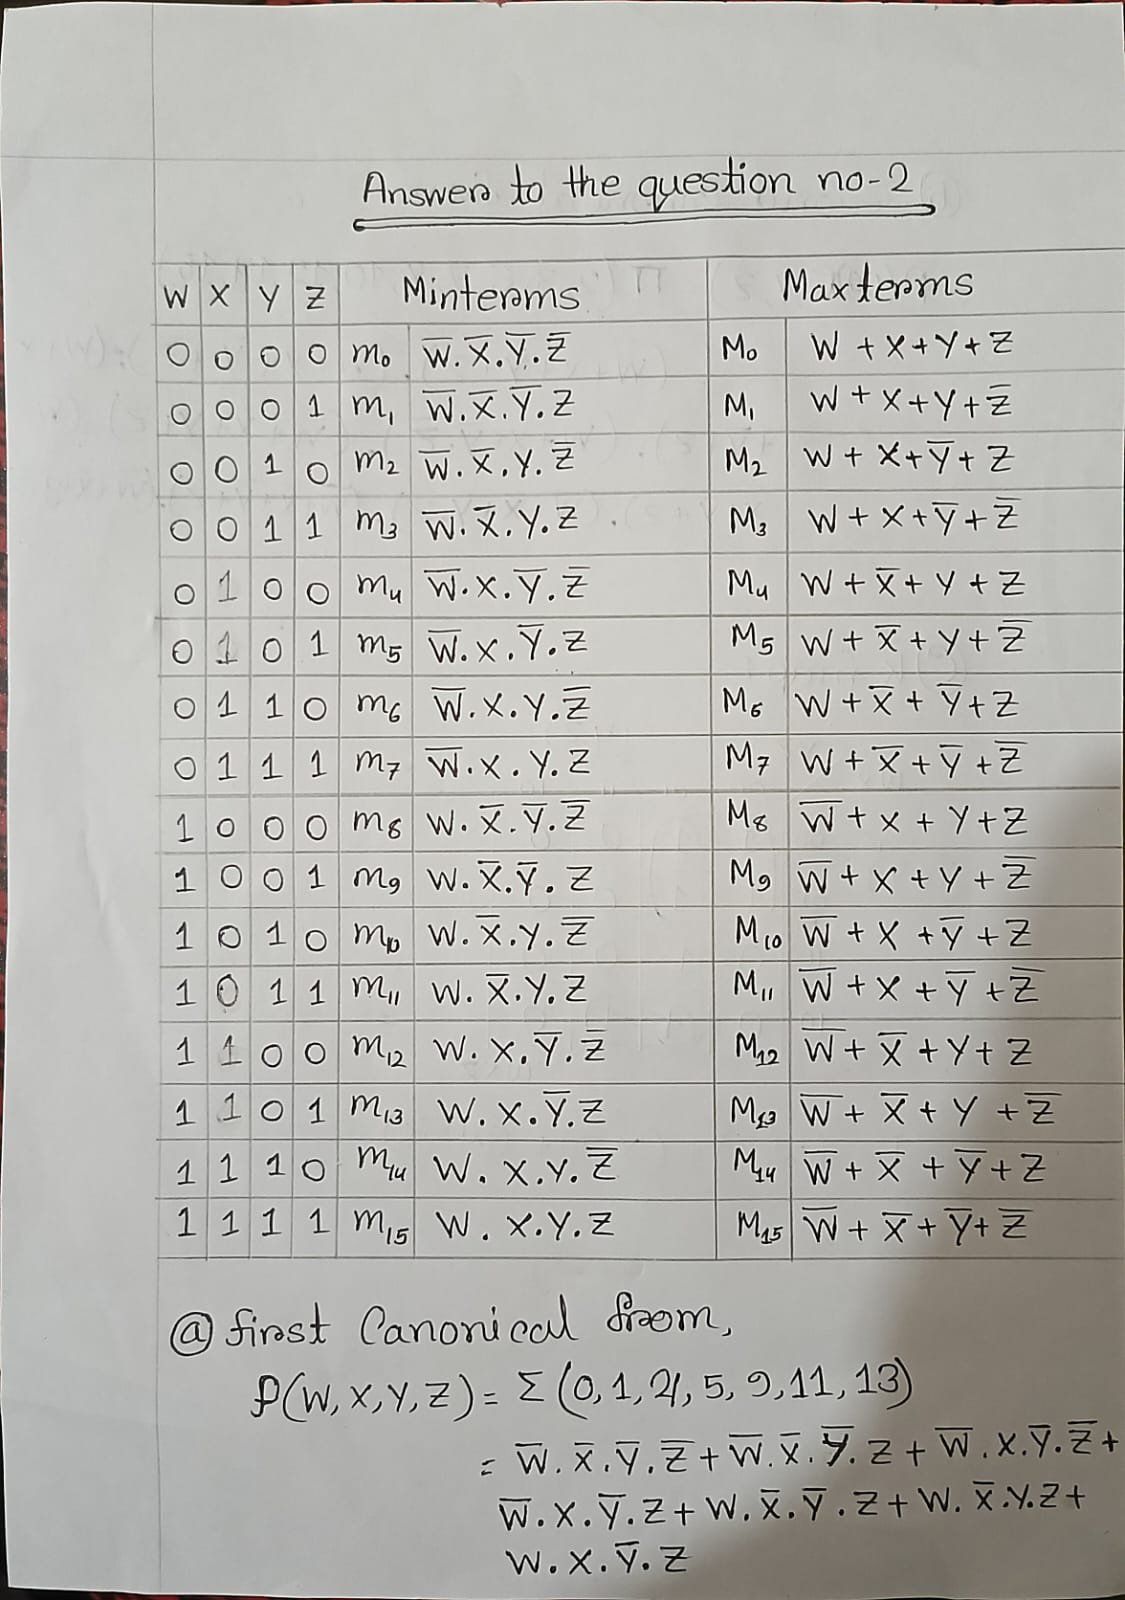 Answer to the question no-2
W X Y Z Minterms Maxterms
0 0 0 0 m₀ W̅.X̅.Y̅.Z̅ M₀ W+X+Y+Z
0 0 0 1 m₁ W̅.X̅.Y̅.Z M₁ W+X+Y+Z̅
0 0 1 0 m₂ W̅.X̅.Y.Z̅ M₂ W+X+Y̅+Z
0 0 1 1 m₃ W̅.X̅.Y.Z M₃ W+X+Y̅+Z̅
0 1 0 0 m₄ W̅.X.Y̅.Z̅ M₄ W+X̅+Y+Z
0 1 0 1 m₅ W̅.X.Y̅.Z M₅ W+X̅+Y+Z̅
0 1 1 0 m₆ W̅.X.Y.Z̅ M₆ W+X̅+Y̅+Z
0 1 1 1 m₇ W̅.X.Y.Z M₇ W+X̅+Y̅+Z̅
1 0 0 0 m₈ W.X̅.Y̅.Z̅ M₈ W̅+X+Y+Z
1 0 0 1 m₉ W.X̅.Y̅.Z M₉ W̅+X+Y+Z̅
1 0 1 0 m₁₀ W.X̅.Y.Z̅ M₁₀ W̅+X+Y̅+Z
1 0 1 1 m₁₁ W.X̅.Y.Z M₁₁ W̅+X+Y̅+Z̅
1 1 0 0 m₁₂ W.X.Y̅.Z̅ M₁₂ W̅+X̅+Y+Z
1 1 0 1 m₁₃ W.X.Y̅.Z M₁₃ W̅+X̅+Y+Z̅
1 1 1 0 m₁₄ W.X.Y.Z̅ M₁₄ W̅+X̅+Y̅+Z
1 1 1 1 m₁₅ W.X.Y.Z M₁₅ W̅+X̅+Y̅+Z̅
ⓐ first Canonical from,
f(W,X,Y,Z) = Σ (0,1,4,5,9,11,13)
= W̅.X̅.Y̅.Z̅+W̅.X̅.Y̅.Z+W̅.X.Y̅.Z̅+
W̅.X.Y̅.Z+W.X̅.Y̅.Z+W.X̅.Y.Z+
W.X.Y̅.Z